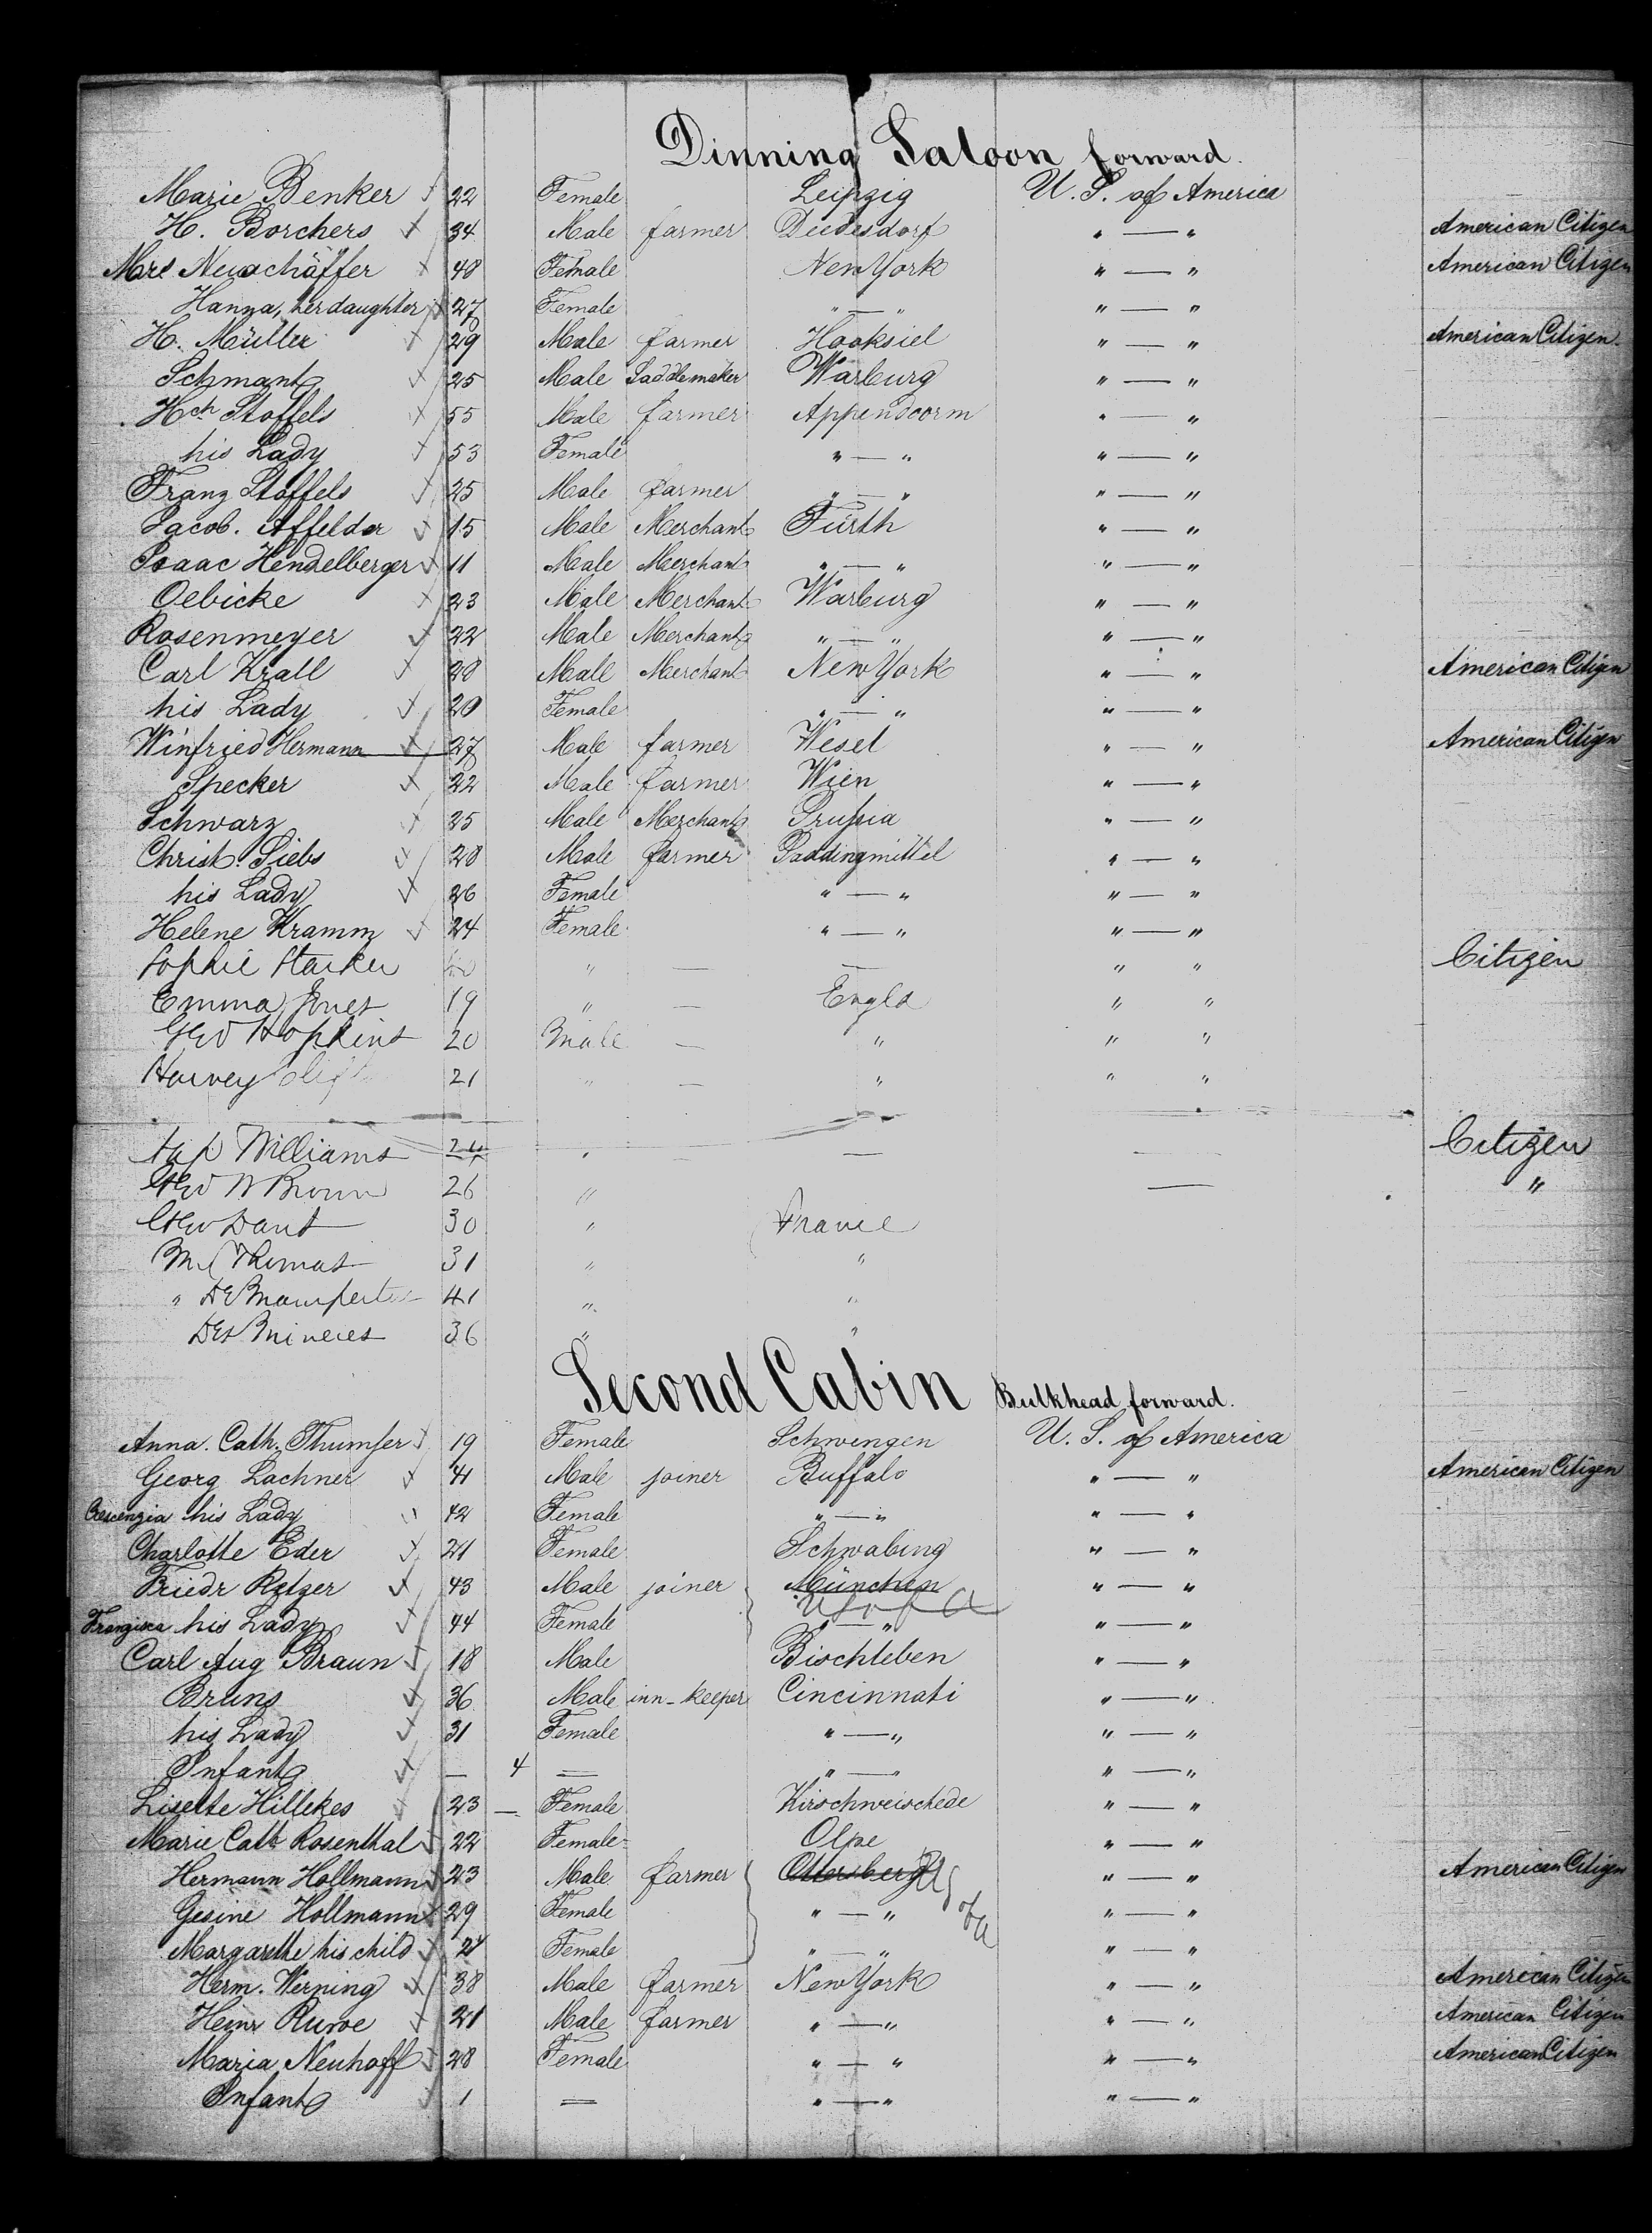 Dinning Saloon forward.
Marie Benker 22 Female Leipzig U. S. of America
H. Borchers 34 Male farmer Dedesdorf " — " American Citizen
Mrs Neuschäffer 48 Female New York " — " American Citizen
Hanna, her daughter 27 Female " — " " — "
H. Müller 29 Male farmer Hooksiel " — " American Citizen
Schmant 25 Male Saddlemaker Warburg " — "
Hch Stoffels 55 Male farmer Appendoorm " — "
his Lady 53 Female " — " " — "
Franz Stoffels 25 Male farmer " — " " — "
Jacob. Affelder 15 Male Merchant Fürth " — "
Isaac Hendelberger 11 Male Merchant " — " " — "
Oebicke 23 Male Merchant Warburg " — "
Rosenmeyer 22 Male Merchant " — " " — "
Carl Krall 28 Male Merchant New York " — " American Citizen
his Lady 20 Female " — " " — "
Winfried Hermann 27 Male farmer Wesel " — " American Citizen
Specker 22 Male farmer Wien " — "
Schwarz 25 Male Merchant Prussia " — "
Christ. Siebs 28 Male farmer Paddingmittel " — "
his Lady 26 Female " — " " — "
Helene Kramm 24 Female " — " " — "
Sophie Starker " — — " " Citizen
Emma Jones 19 " — Engld " "
Geo Hopkins 20 Male — " " "
Harvey 21 " — " " "
Williams — — Citizen
Geo W Brown 26 " — "
Geo 30 " France
Thomas 31 " "
" 41 " "
36 " "
Second Cabin Bulkhead forward.
Anna. Cath. Thumser 19 Female Schwengen U. S. of America
Georg Lachner 41 Male joiner Buffalo " — " American Citizen
Crescenzia his Lady 42 Female " — " " — "
Charlotte Eder 21 Female Schwabing " — "
Friedr Retzer 43 Male joiner München " — "
U S of A
Franzisca his Lady 44 Female " — " " — "
Carl Aug Braun 18 Male Bischleben " — "
Bruns 36 Male inn-keeper Cincinnati " — "
his Lady 31 Female " — " " — "
Infant — 4 = " — " " — "
Lisette Hillekes 23 — Female Kirschweischede " — "
Marie Cath Rosenthal 22 Female Olpe " — "
Hermann Hollmann 23 Male farmer Ottersberg U S of A " — " American Citizen
Gesine Hollmann 29 Female " — " " — "
Margarethe his child Female " — " " — "
Herm. Werning 38 Male farmer New York " — " American Citizen
Heinr Ruwe 21 Male farmer " — " " — " American Citizen
Maria Neuhoff 28 Female " — " " — " American Citizen
Infant 1 = " — " " — "